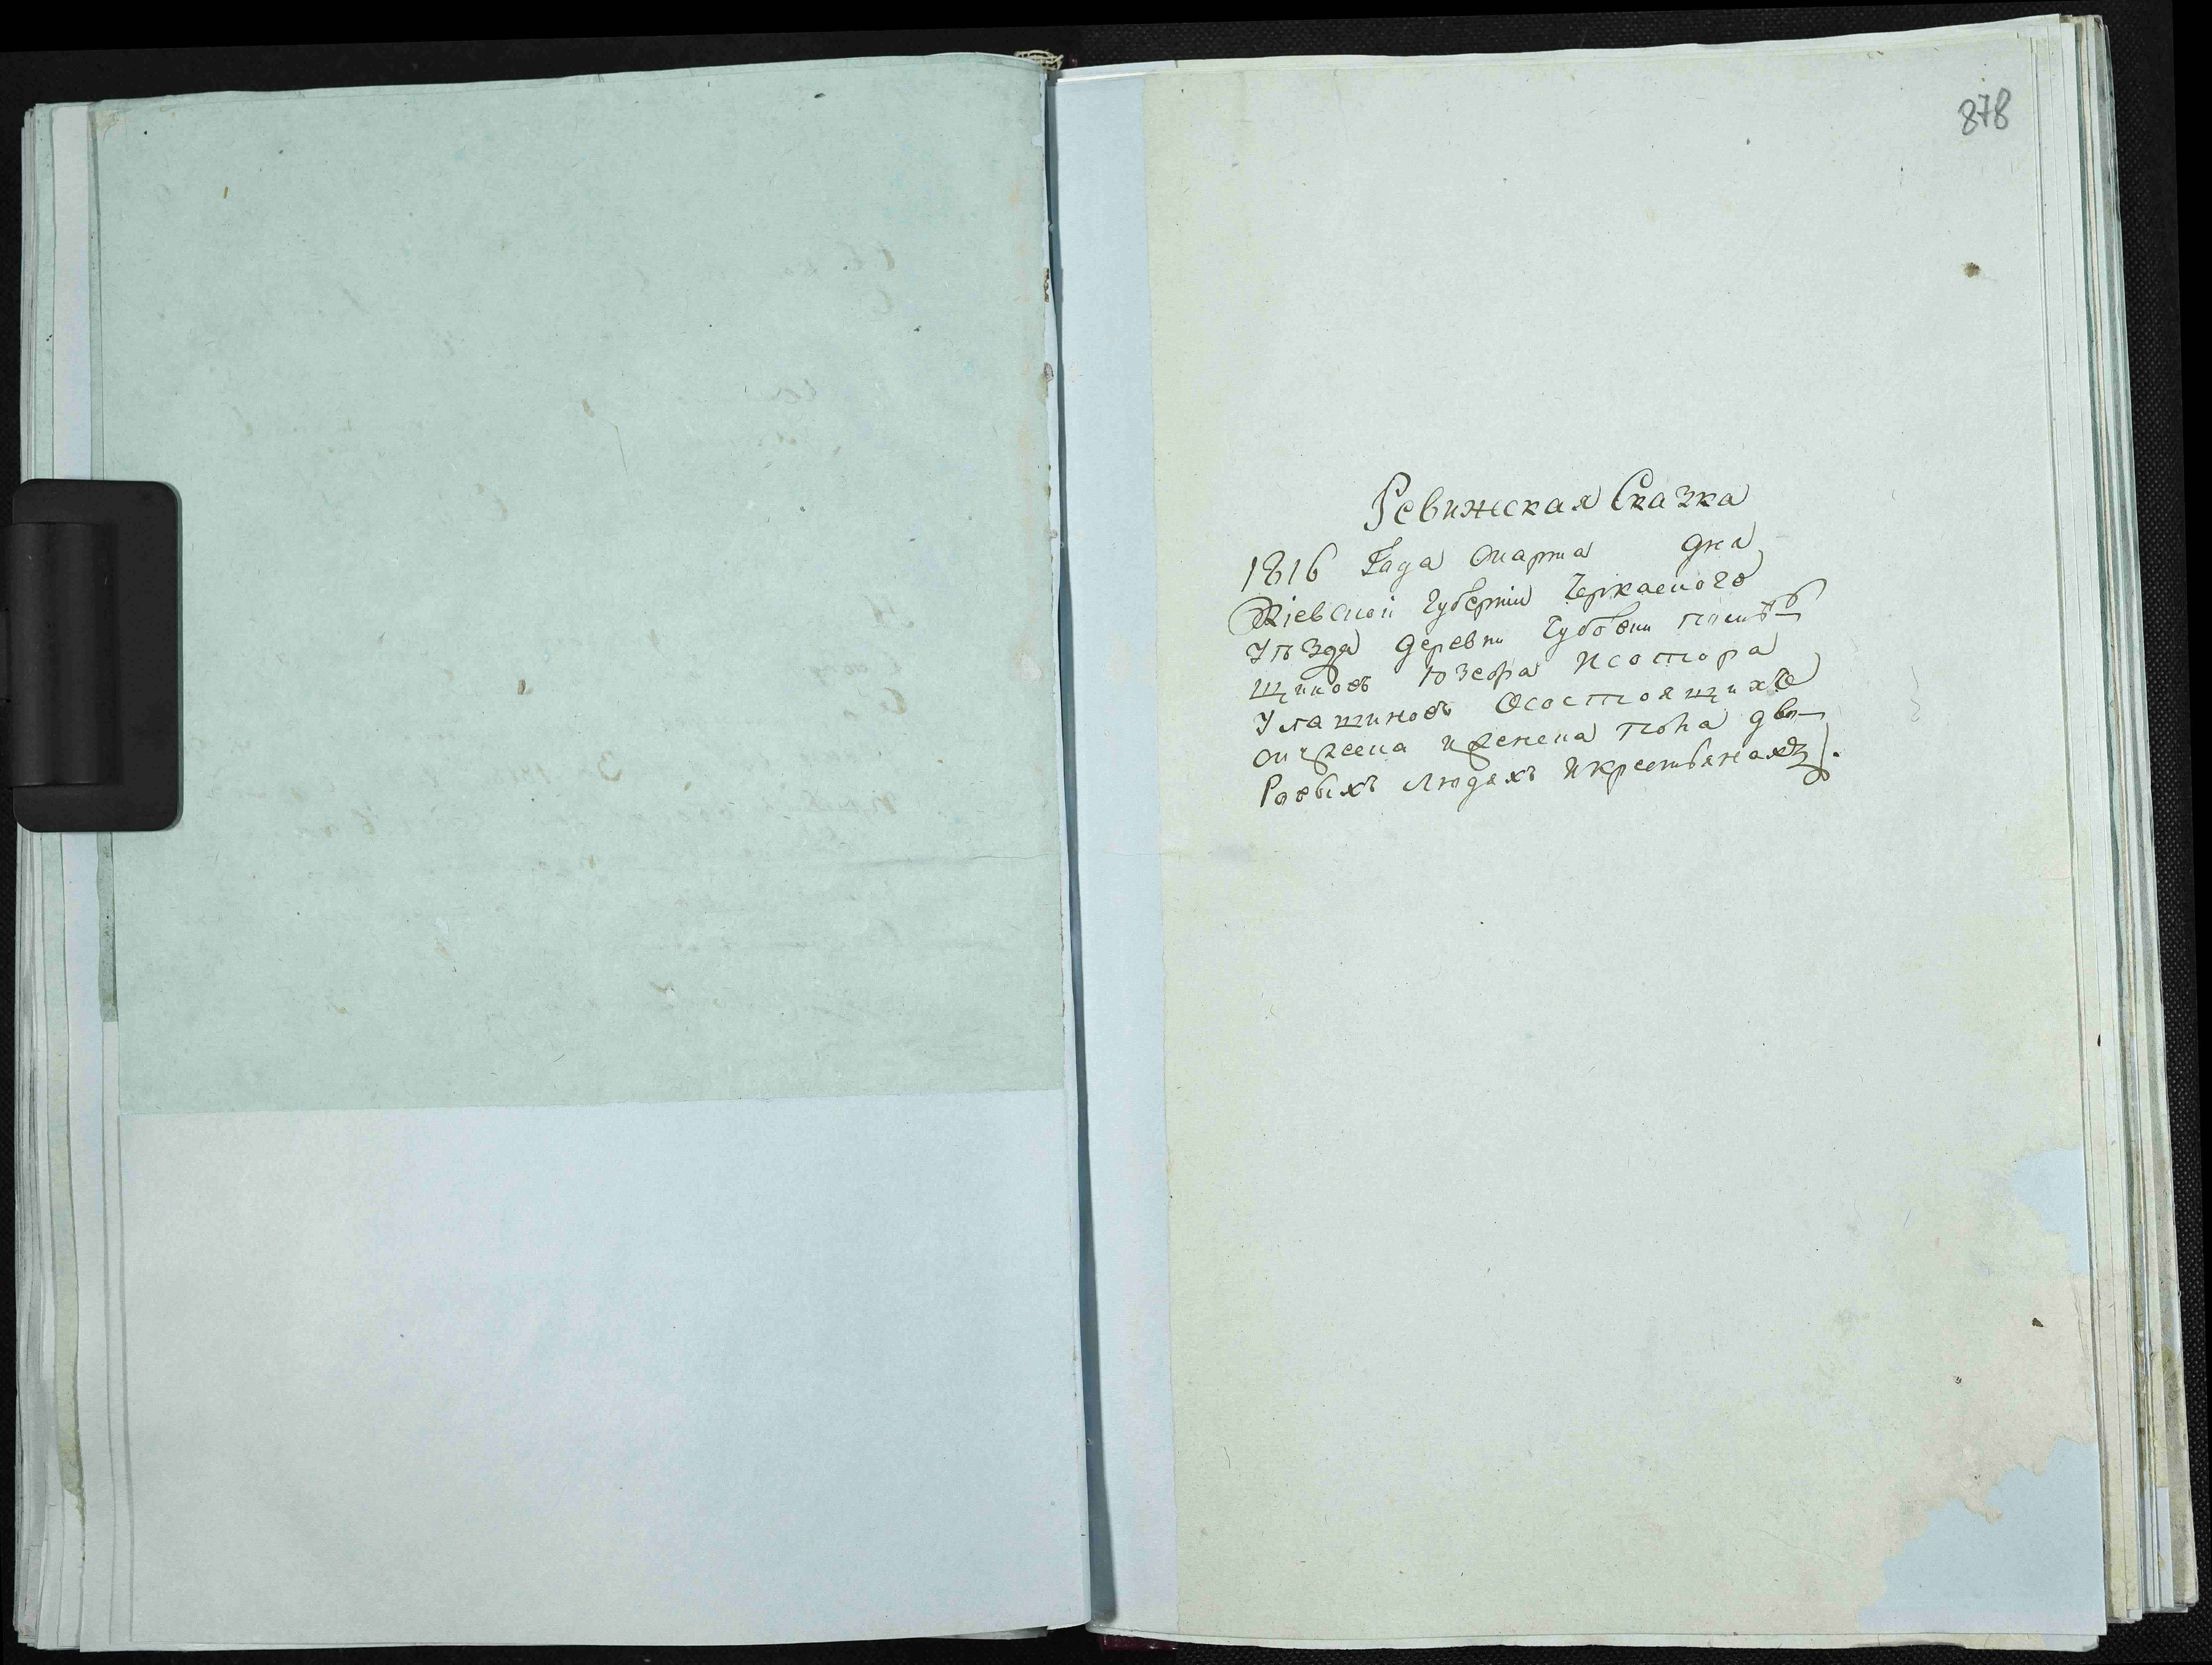 878
Ревижская Сказка
1816 Года Марта дня
Кіевской Губерніи Черкаского
Уѣзда деревни Губовки помѣ-
щиковъ Юзефа
Улашиновъ Осостоящихъ
мужеска иженска пола дво-
Ровыхъ Людяхъ Икрестьянахъ.